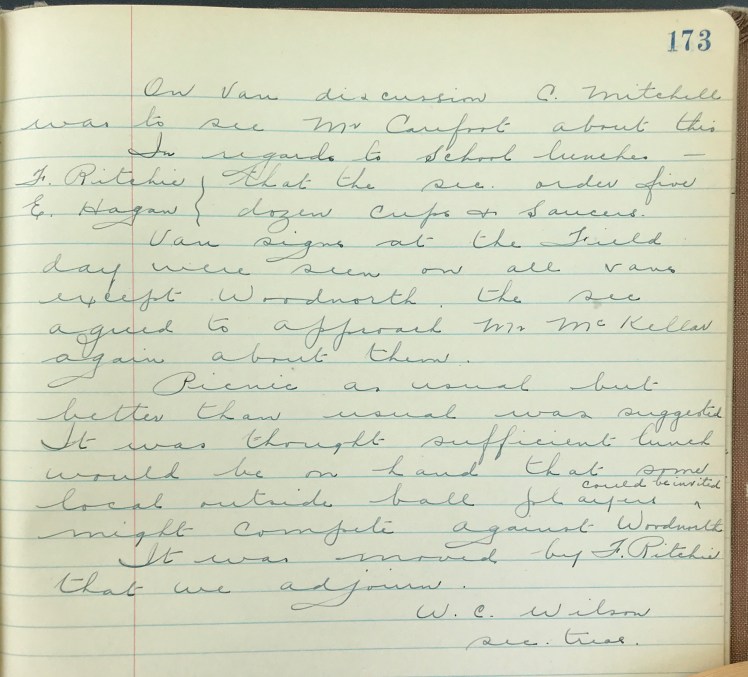 173
On Van discussion C. Mitchell
was to see Mr Carefoot about this
In regards to School lunches —
F. Ritchie } that the sec. order five
E. Hagan } dozen cups & saucers.
Van signs at the Field
day were seen on all vans
except Woodnorth. the sec
agreed to approach Mr McKellar
again about them.
Picnic as usual but
better than usual was suggested
It was thought sufficient lunch
would be on hand that some
could be invited
local outside ball players ^
might compete against Woodnorth
It was moved by F. Ritchie
that we adjourn.
W. C. Wilson
sec. treas.